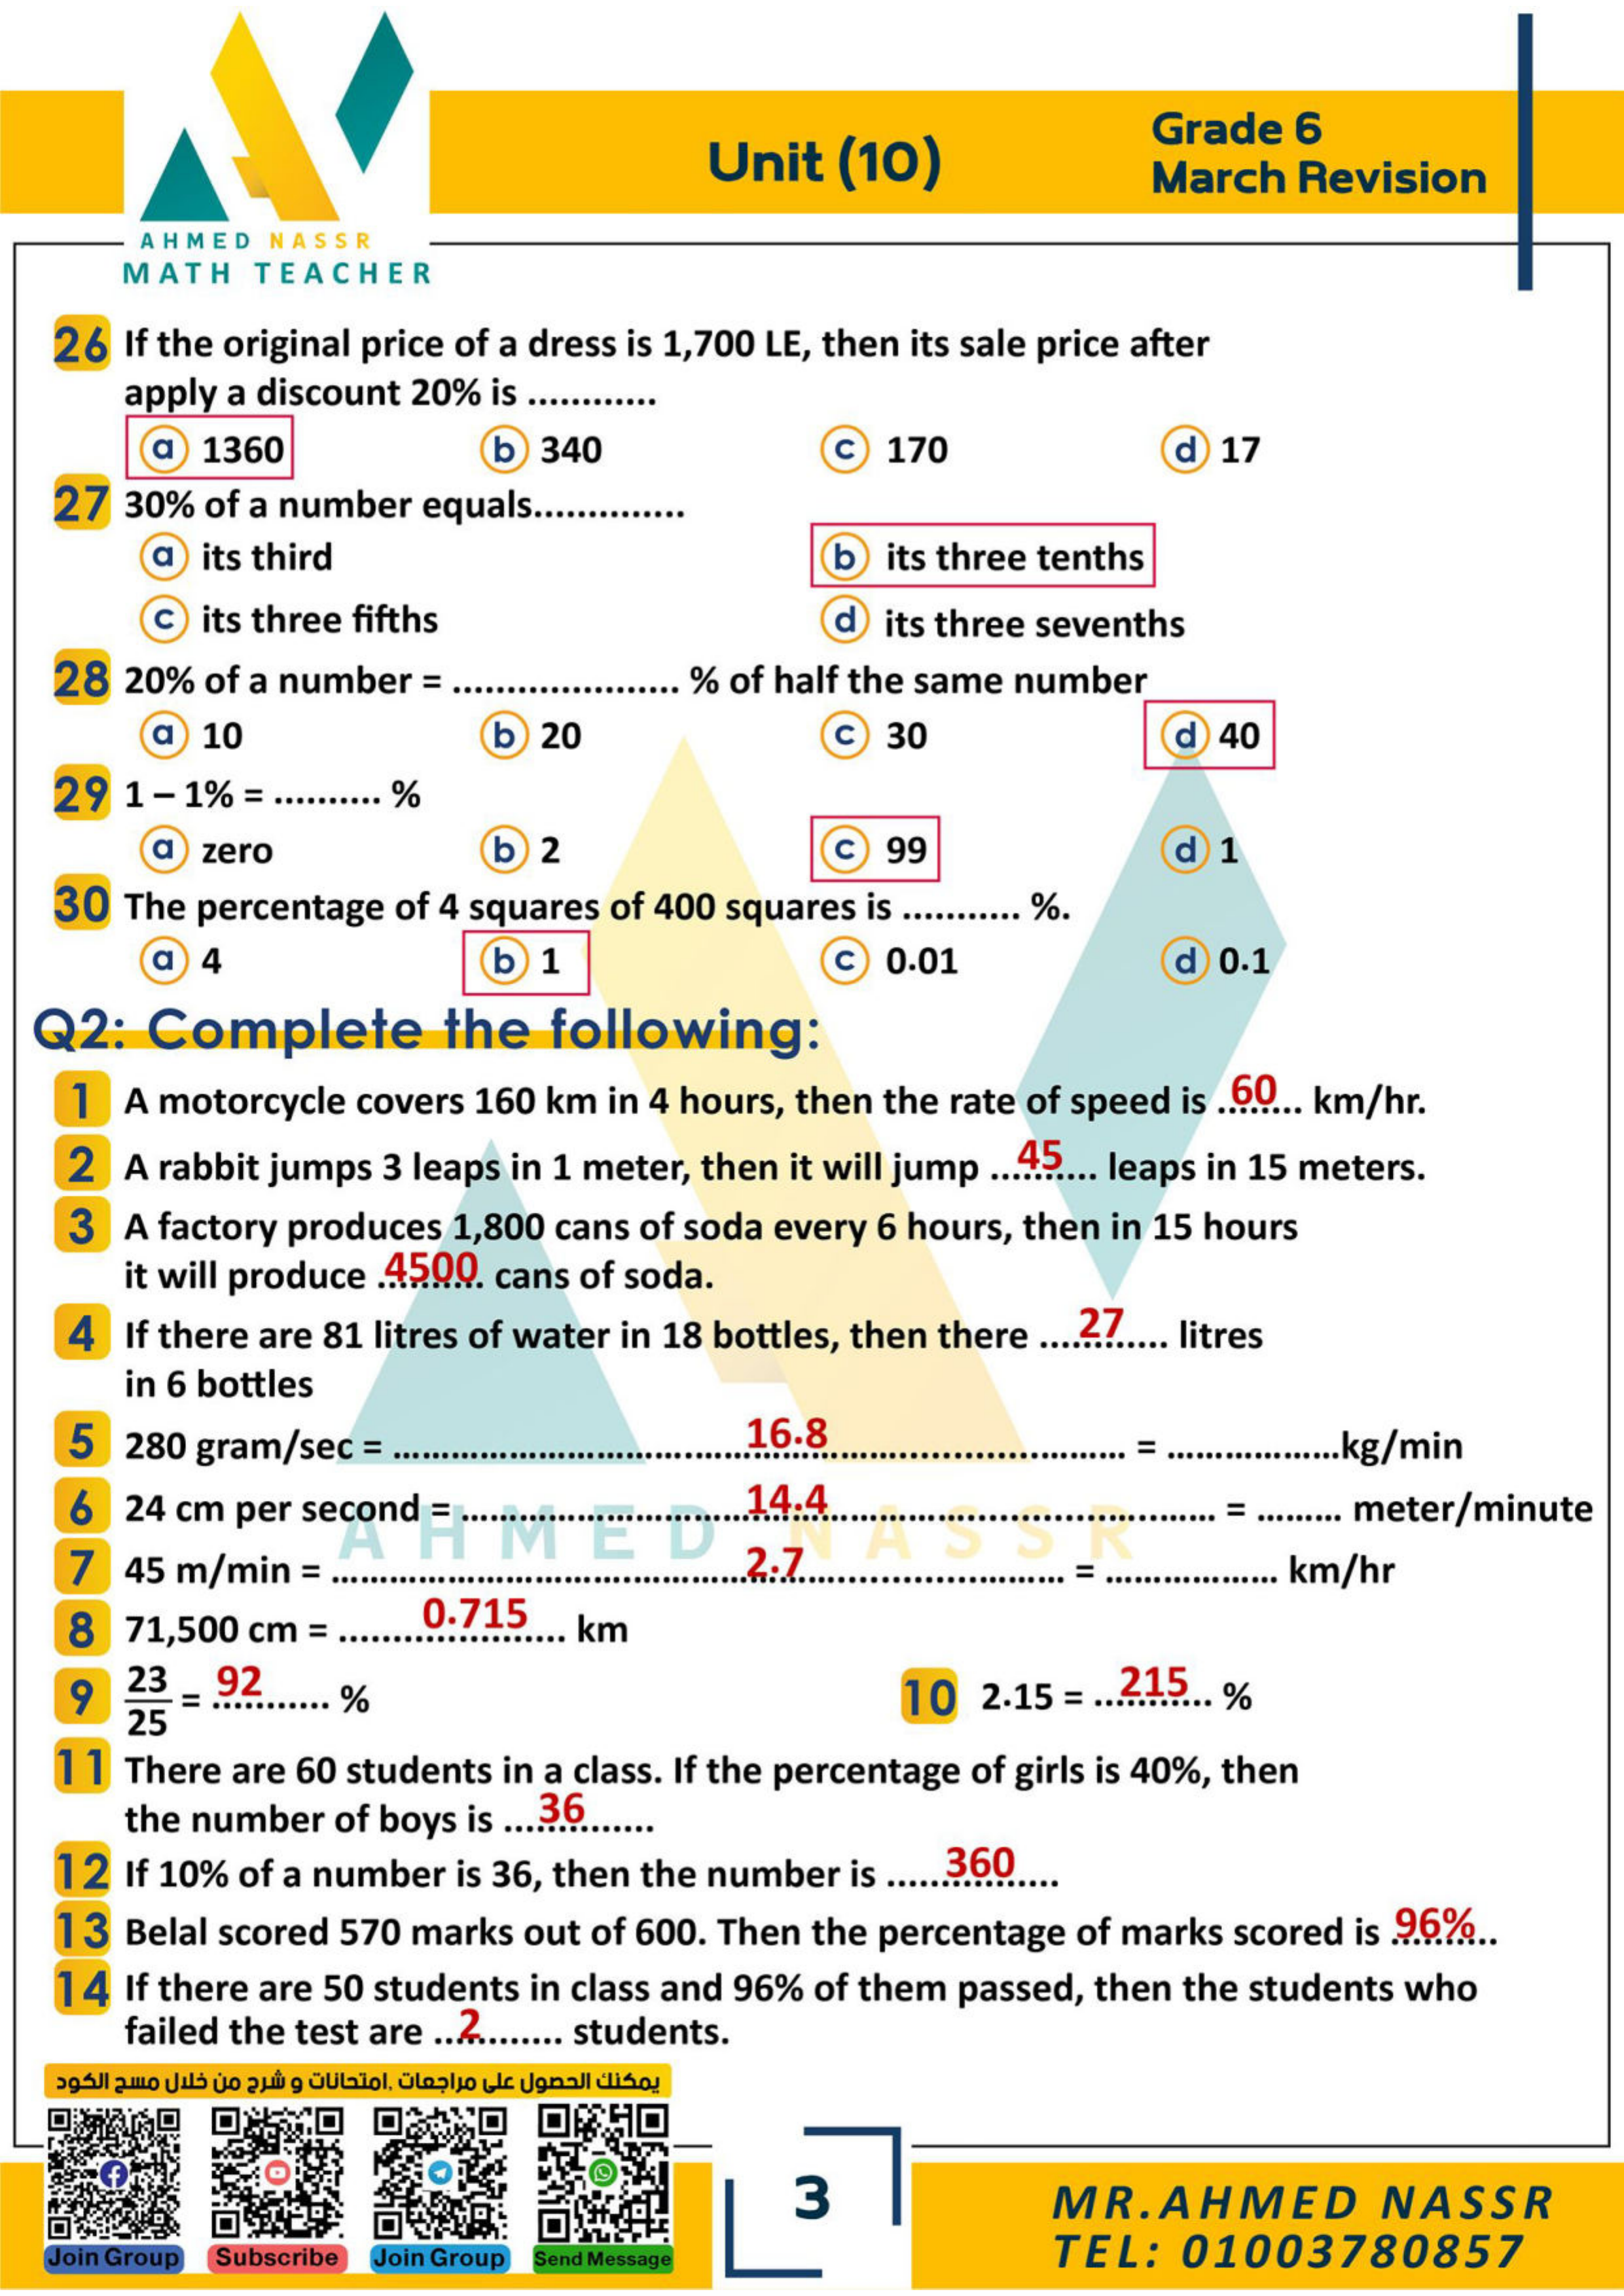 AHMED NASSR
MATH TEACHER
Unit (10)
Grade 6
March Revision
26 If the original price of a dress is 1,700 LE, then its sale price after
apply a discount 20% is ............
a 1360 b 340 c 170 d 17
27 30% of a number equals..............
a its third b its three tenths
c its three fifths d its three sevenths
28 20% of a number = ..................... % of half the same number
a 10 b 20 c 30 d 40
29 1 – 1% = .......... %
a zero b 2 c 99 d 1
30 The percentage of 4 squares of 400 squares is ........... %.
a 4 b 1 c 0.01 d 0.1
Q2: Complete the following:
1 A motorcycle covers 160 km in 4 hours, then the rate of speed is ..60.. km/hr.
2 A rabbit jumps 3 leaps in 1 meter, then it will jump ...45... leaps in 15 meters.
3 A factory produces 1,800 cans of soda every 6 hours, then in 15 hours
it will produce .4500. cans of soda.
4 If there are 81 litres of water in 18 bottles, then there ....27.... litres
in 6 bottles
5 280 gram/sec = ..............................16.8.............................. = ..................kg/min
6 24 cm per second = ..............................14.4.............................. = ......... meter/minute
7 45 m/min = ..............................2.7.............................. = .................. km/hr
8 71,500 cm = ........0.715.... km
9 23/25 = .92....... %
10 2.15 = ...215... %
11 There are 60 students in a class. If the percentage of girls is 40%, then
the number of boys is ....36.......
12 If 10% of a number is 36, then the number is ......360.....
13 Belal scored 570 marks out of 600. Then the percentage of marks scored is .96%..
14 If there are 50 students in class and 96% of them passed, then the students who
failed the test are ...2........ students.
AHMED NASSR
يمكنك الحصول على مراجعات ,امتحانات و شرح من خلال مسح الكود
Join Group Subscribe Join Group Send Message
3
MR.AHMED NASSR
TEL: 01003780857